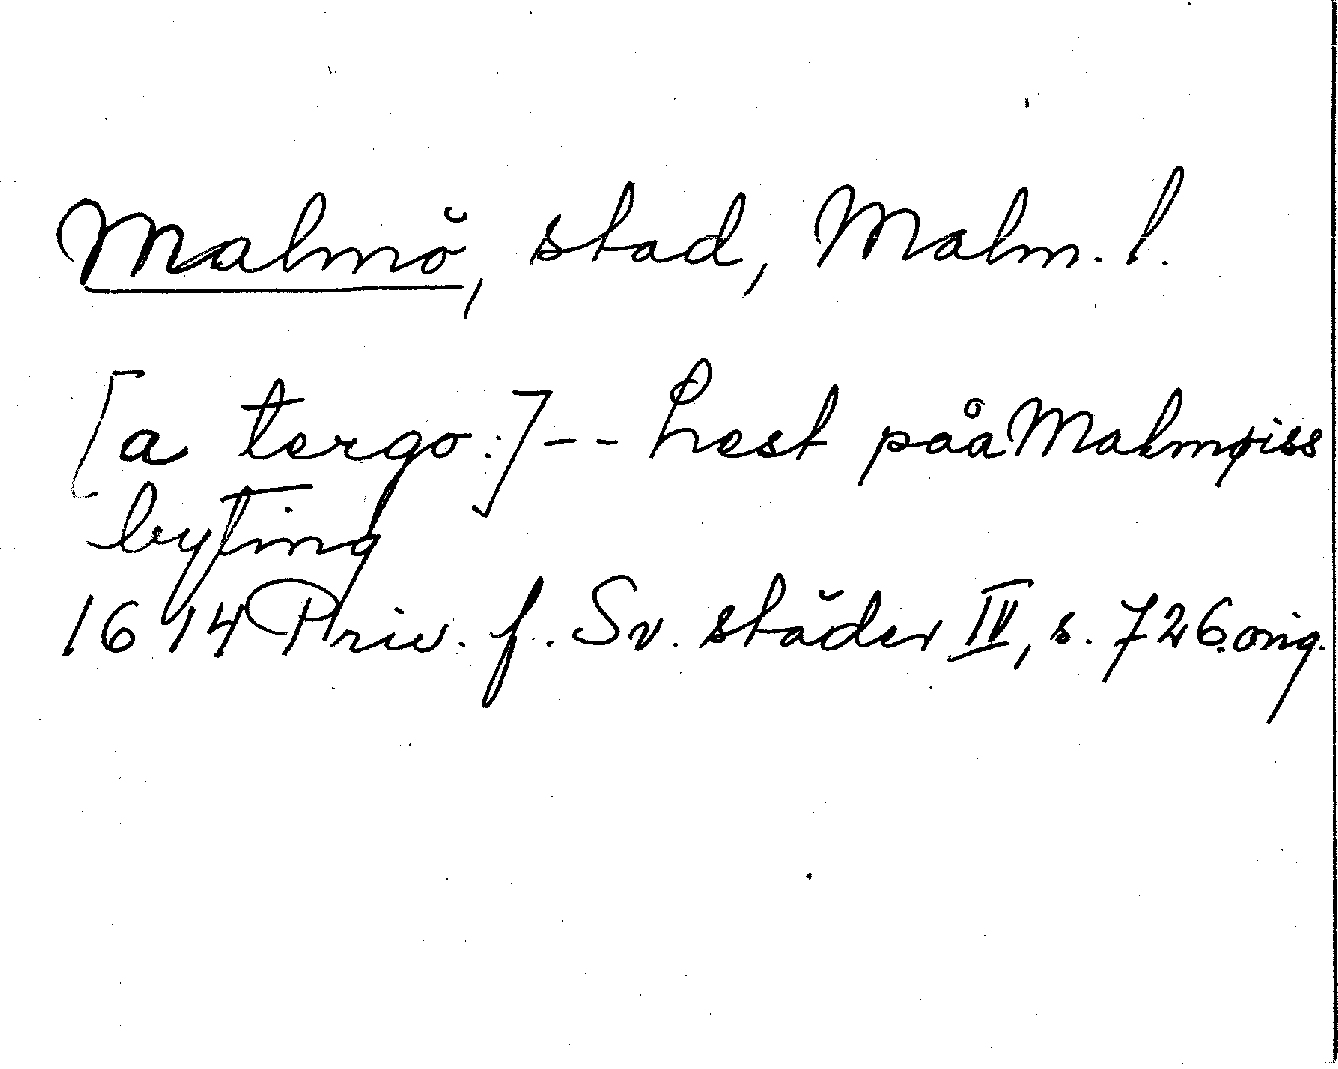 Malmö, stad, Malm. l.
[a tergo:] -- Lest påa Malmøiss
byting
1614 Priv. f. Sv. städer IV, s. 726. orig.